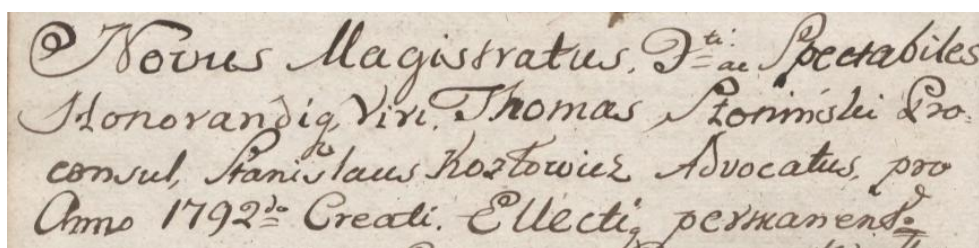 Novus Magistratus. Ftti: ac Spectabiles
Honorandiq Viri. Thomas Słoninski Pro-
consul, Stanislaus Kozłowicz Advocatus, pro
Anno 1792do Creati. Ellectiq permanend